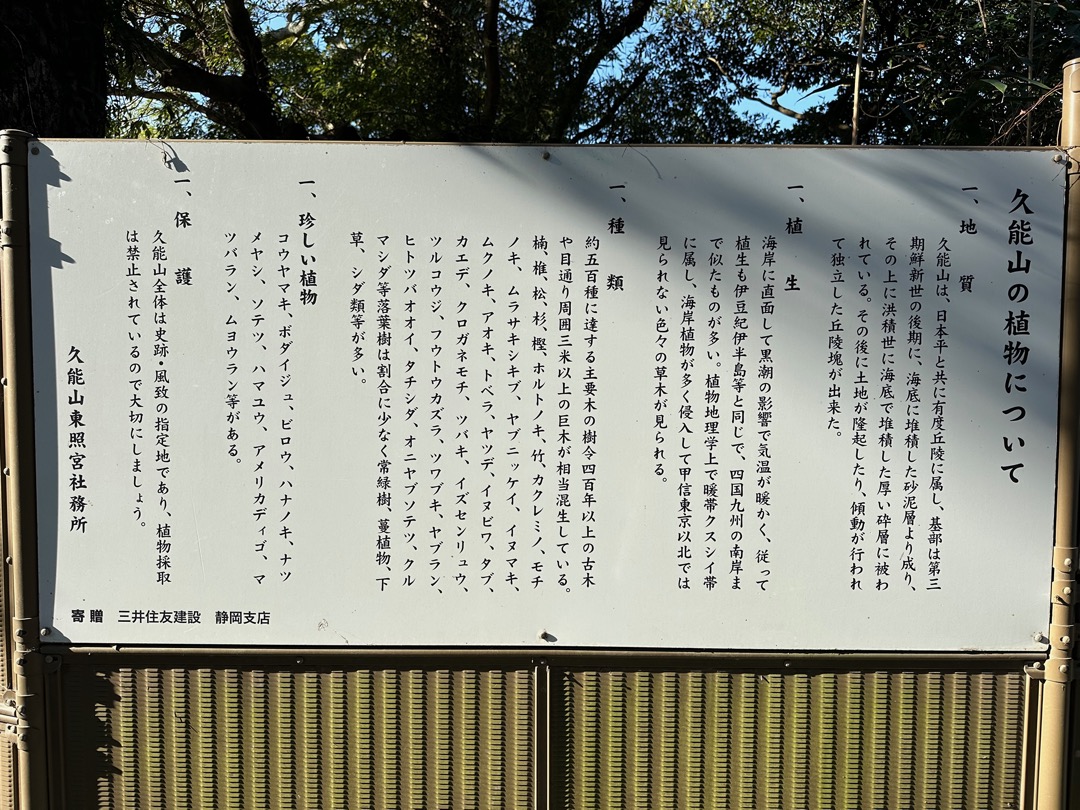 久能山の植物について
一、地質
久能山は、日本平と共に有度丘陵に属し、基部は第三
期鮮新世の後期に、海底に堆積した砂泥層より成り、
その上に洪積世に海底で堆積した厚い砕層に被わ
れている。その後に土地が隆起したり、傾動が行われ
て独立した丘陵塊が出来た。
一、植生
海岸に直面して黒潮の影響で気温が暖かく、従って
植生も伊豆紀伊半島等と同じで、四国九州の南岸ま
で似たものが多い。植物地理学上で暖帯クスシイ帯
に属し、海岸植物が多く侵入して甲信東京以北では
見られない色々の草木が見られる。
一、種類
約五百種に達する主要木の樹令四百年以上の古木
や目通り周囲三米以上の巨木が相当混生している。
楠、椎、松、杉、樫、ホルトノキ、竹、カクレミノ、モチ
ノキ、ムラサキシキブ、ヤブニッケイ、イヌマキ、
ムクノキ、アオキ、トベラ、ヤツデ、イヌビワ、タブ、
カエデ、クロガネモチ、ツバキ、イズセンリュウ、
ツルコウジ、フウトウカズラ、ツワブキ、ヤブラン、
ヒトツバオオイ、タチシダ、オニヤブソテツ、クル
マシダ等落葉樹は割合に少なく常緑樹、蔓植物、下
草、シダ類等が多い。
一、珍しい植物
コウヤマキ、ボダイジュ、ビロウ、ハナノキ、ナツ
メヤシ、ソテツ、ハマユウ、アメリカディゴ、マ
ツバラン、ムヨウラン等がある。
一、保護
久能山全体は史跡・風致の指定地であり、植物採取
は禁止されているので大切にしましょう。
久能山東照宮社務所
寄贈 三井住友建設 静岡支店